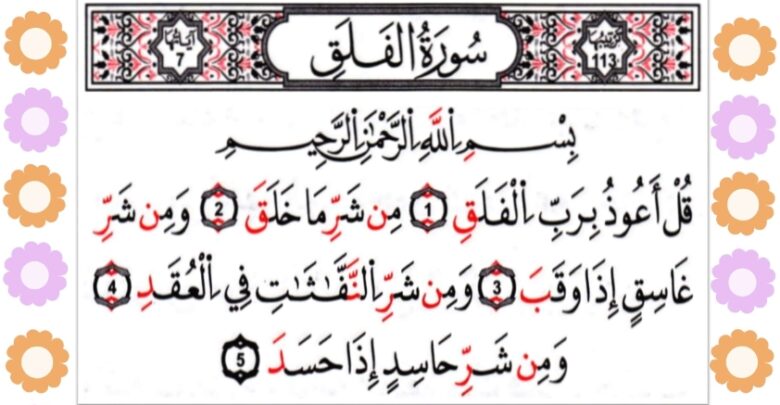 آياتها 7 سُورَةُ الْفَلَقِ ترتيبها 113
بِسْمِ اِ۬للَّهِ اِ۬لرَّحْمَٰنِ اِ۬لرَّحِيمِ
قُلْ أَعُوذُ بِرَبِّ اِ۬لْفَلَقِ 1 مِن شَرِّ مَا خَلَقَ 2 وَمِن شَرِّ
غَاسِقٍ إِذَا وَقَبَ 3 وَمِن شَرِّ اِ۬لنَّفَّٰثَٰتِ فِي اِ۬لْعُقَدِ 4
وَمِن شَرِّ حَاسِدٍ إِذَا حَسَدَ 5